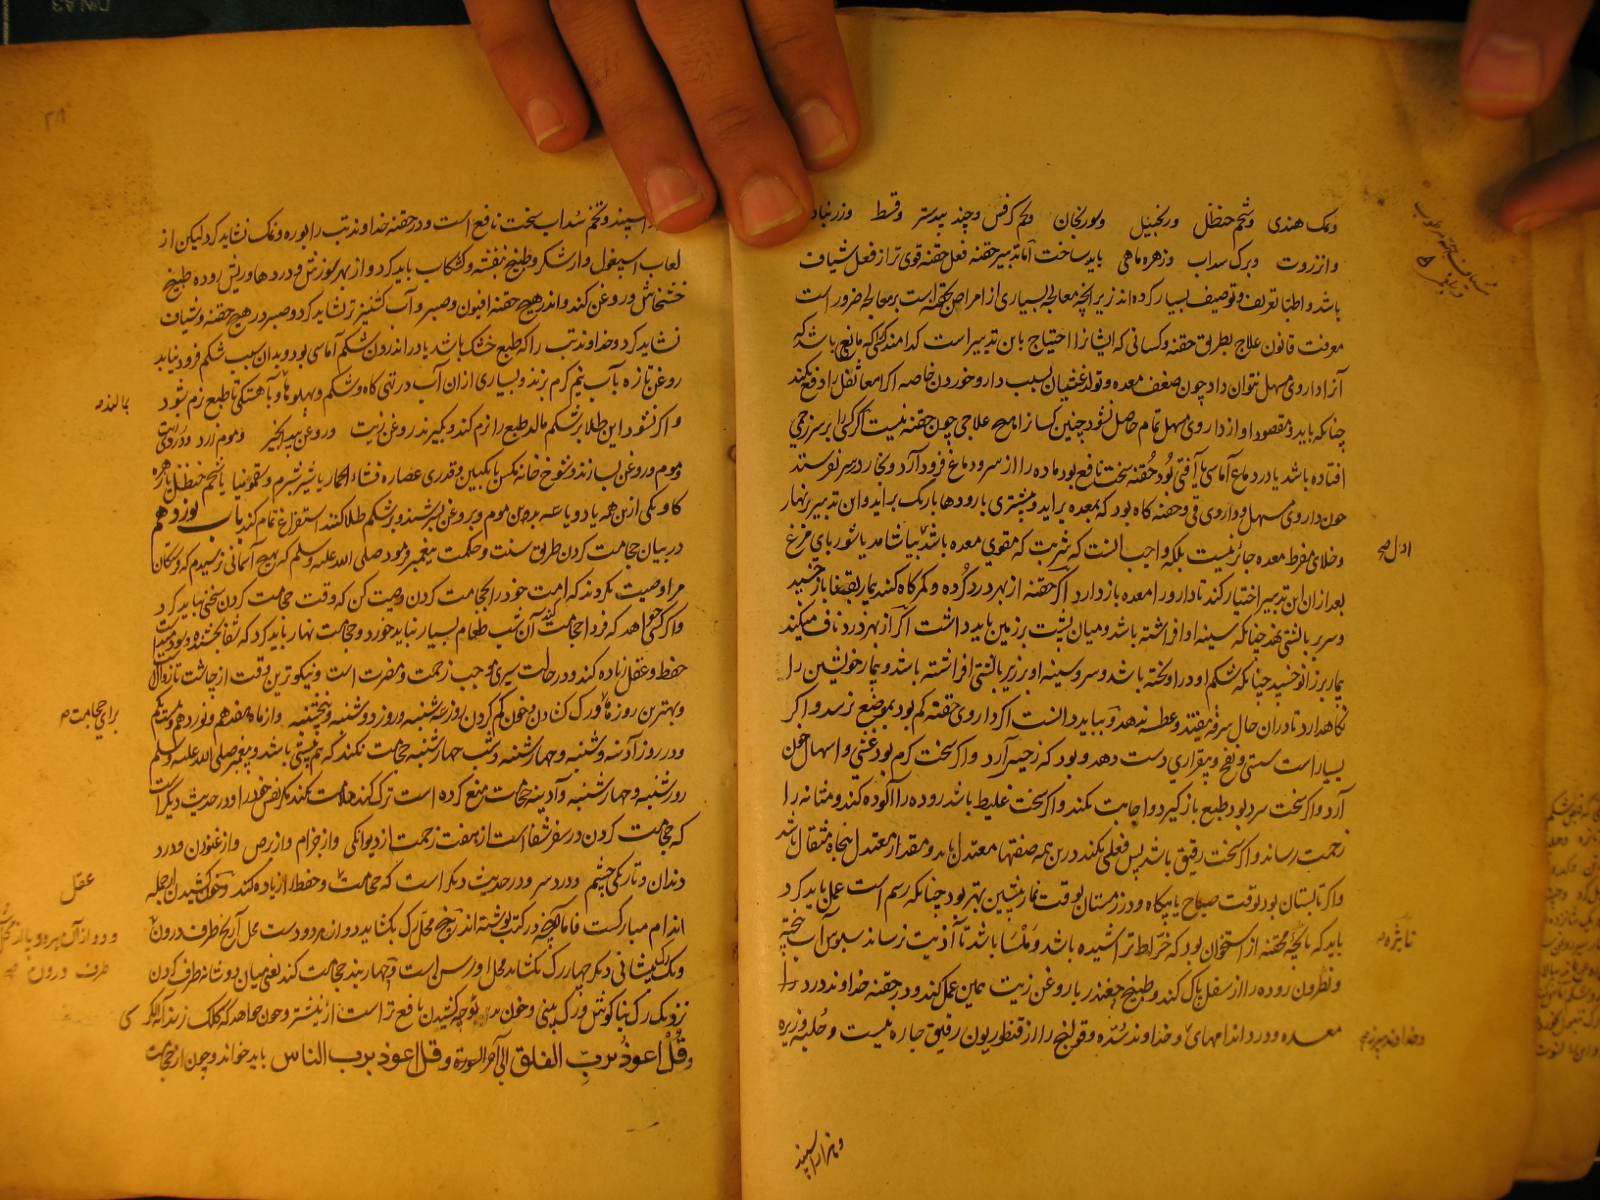 ونمک هندی وشحم حنظل وزنجبیل وبوزیدان وتخم کرفس وجند بیدستر وقسط وزرنباد
وانزروت وبرک سداب وزهره ماهی باید ساخت اما تدبیر حقنه فعل حقنه قوی تر از فعل شیاف
باشد واطبا تعریف وتوصیف بسیار کرده اند زیرا که معالجه بسیاری از امراض بحقنه است بر معالج ضرور است
معرفت قانون علاج بطریق حقنه وکسانی که ایشانرا احتیاج باین تدبیر است کدامند کسی که مانع باشد که
آنرا داروی مسهل نتوان داد چون ضعف معده وتولد غثیان بسبب دارو خوردن خاصه اکر امعا ثفل را دفع نکند
چنانکه باید ومقصود او از داروی مسهل تمام حاصل نشود چنین کسانرا هیچ علاجی چون حقنه نیست اکر کسی را بر سر زخمی
افتاده باشد یا در دماغ آماسی یا آفتی بود حقنه سخت نافع بود ماده را از سر ودماغ فرود آرد وبخار در سر نفرستد
چون داروی مسهل وداروی قی وحقنه کاه بود که بمعده براید وبیشتری با رودها باریک براید واین تدبیر نهار
وخلای مفرط معده جائز نیست بلکه واجب است که شربت که مقوی معده باشد
بعد ازان این تدبیر اختیار کند تا دارو را معده باز دارد اکر حقنه از بهر درد کرده وکمرکاه کند بیمار بقفا باز خسپد
وسر بر بالشی نهد چنانکه سینه او افراشته باشد ومیان پشت بر زمین باید داشت اکر از بهر درد ناف میکند
بیمار بر زانو خسپد چنانکه شکم او در آویخته باشد وسر وسینه او بر زیر بالشی افراشته باشد وبیمار خویشتن را
نکاهدارد تا در ان حال سرفه نیفتد وعطسه ندهد وبباید دانست اکر داروی حقنه کم بود بموضع نرسد واکر
بسیار است سستی ونفخ وبیقراری دست دهد وبود که زحیر آرد واکر سخت کرم بود غشی واسهال خون
آرد واکر سخت سرد بود طبع باز کیرد واجابت نکند واکر سخت غلیظ باشد روده را آلوده کند ومثانه را
زحمت رساند واکر سخت رقیق باشد پس فعلی نکند درین همه صفتها معتدل باید ومقدار معتدل پنجاه مثقال باشد
واکر تابستان بود توقت صباح یا بیکاه ودر زمستان بوقت نماز پیشین بهتر بود چنانکه رسم است عمل باید کرد
باید که نایچه محقنه از استخوان بود که خراط تراشیده باشد وملسا باشد تا آذیت نرساند سبوس آب پخته
ونطرون روده را از سفل پاک کند وطبیخ چغندر با روغن زیت همین عمل کند ودر حقنه خداوند درد را
معده ودرد اندامهای وخداوند سده وقولنج را از قنطوریون رفیق چاره نیست وحلبه وزیره
اول صح
تایزه
وهزار اسپند
اسپند وتخم سداب سخت نافع است ودر حقنه خداوند تب را بوره ونمک نشاید کرد لیکن از
لعاب اسپغول واز شکر وطبیخ بنفشه وکشکاب باید کرد واز بهر سوزش ودردها وریش روده طبیخ
خشخاش وروغن کند واندر هیچ حقنه افیون وصبر وآب کشنیز تر نشاید کرد وصبر در هیچ حقنه وشیاف
نشاید کرد وخداوند تب را که طبع خشک باشد یا در اندرون شکم آماسی بود وبدان سبب شکم فرود نیاید
روغن تازه بآب نیم کرم بزند وبسیاری ازان آب در تهی کاه وشکم وپهلوها وبآهستکی تا طبع نرم شود
واکر نشود این طلا بر شکم مالد طبع را نرم کند وبکیرند روغن زیت وروغن بیدانجیر وموم زرد
وموم وروغن بسازند وشوخ خانه مکس بانکبین وقدری عصاره قثاء الحمار یا شیر شبرم وسقمونیا یا شحم حنظل یا زهره
کاو یکی از ین همه یا دو یا سه بدین موم وبروغن بسرشند وبر شکم طلا کنند استفراغ تمام کند باب نوزدهم
در بیان حجامت کردن طریق سنت وحکمت پیغمبر فرمود صلی الله علیه وسلم که بهیچ آسمانی نرسیدم که فرشتکان
مرا وصیت نکردند که امت خود را بحجامت کردن وصیت کن که وقت حجامت کردن سخنی نباید کرد
واکر کسی خواهد که فردا حجامت کند آن شب طعام بسیار نباید خورد وحجامت نهار باید کرد که شفا بخشنده بود
حفظ وعقل زیاده کند ودر حالت سیری موجب زحمت ومضرت است ونیکوترین وقت از چاشت تا زوال
وبهترین روزها ورک کشادن وخون کم کردن روز سه شنبه وروز دوشنبه وپنجشنبه واز ماه هفدهم ونوزدهم وبیستم
ودر روز آدینه وشنبه وچهارشنبه وشب چهارشنبه حجامت نکند که بیم پیسی باشد وپیغمبر صلی الله علیه وسلم
روز شنبه وچهار شنبه وآدینه حجامت منع کرده است ترک کند وملامت نکند مکر نفس خود را ودر حدیث دیکر است
که حجامت کردن در سر شفا است از هفت زحمت از دیوانکی واز جزام واز برص واز غنودن ودرد
دندان وتاریکی چشم ودرد سر ودر حدیث دیکر است که حجامت عقل وحفظ را زیاده کند وخون کشیدن از جمله
اندام مبارکست فاما آنچه در کتب نوشته اند پنج محل رک بکشاید دو از هر دو دست محل آرنج طرف درون
ویک پیشانی دیکر چهار رک بکشاید محل او رس است وچهار بند حجامت کند یعنی میان دو شانه طرف کردن
نزدیک رک بناکوش ورک بینی وخون بدیوچه کشیدن نافع تر است از نیشتر وچون خواهد که کلک زند آیة الکرسی
وقل اعوذ برب الفلق الی آخر السورة وقل اعوذ برب الناس باید خواند وچون از حجامت
بمالند
برای حجامت
عقل
طرف درون